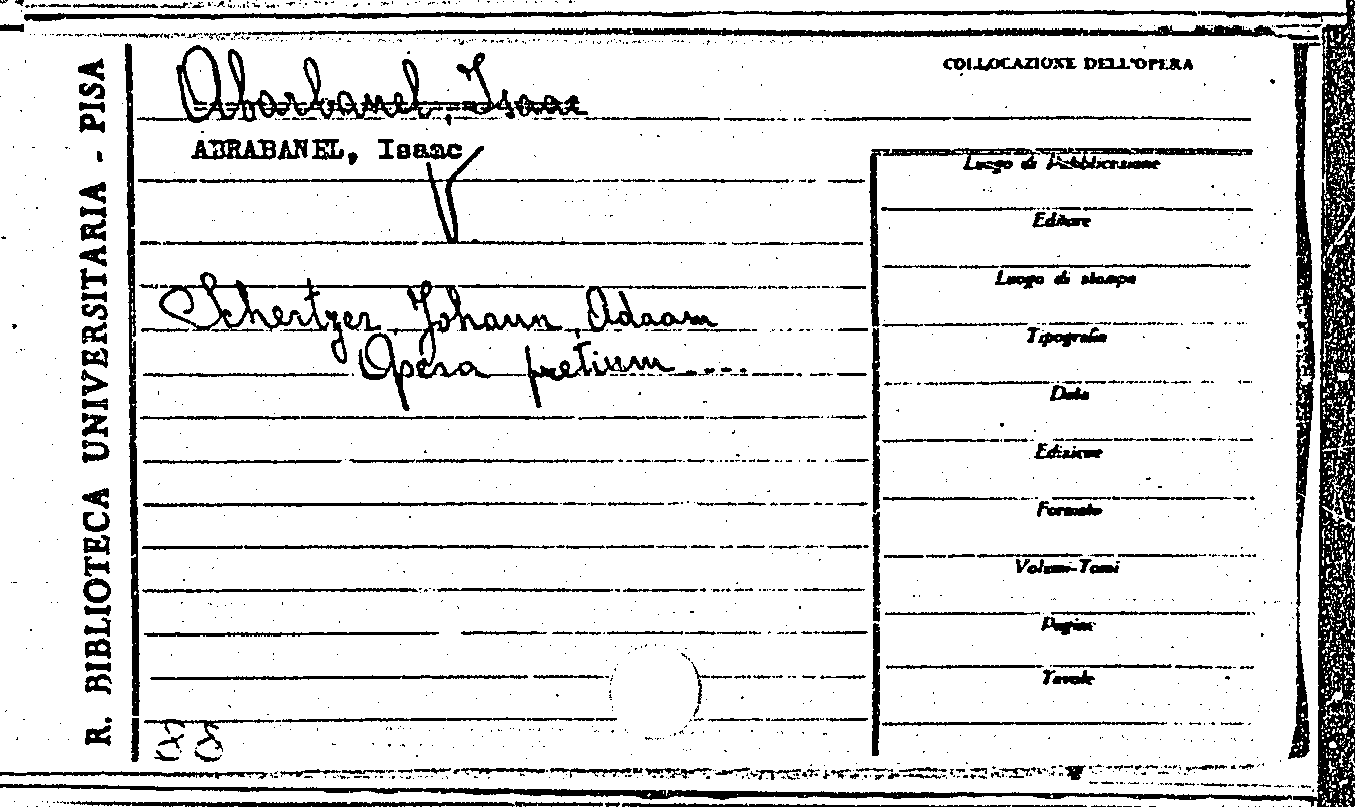 R. BIBLIOTECA UNIVERSITARIA - PISA
Abarbanel, Isaac
ABRABANEL, Isaac
V
Schertzer, Johann, Adaam
Opera pretium ....
88
COLLOCAZIONE DELL'OPERA
Luogo di Pubblicazione
Editore
Luogo di stampa
Tipografia
Data
Edizione
Formato
Volumi-Tomi
Pagine
Tavole